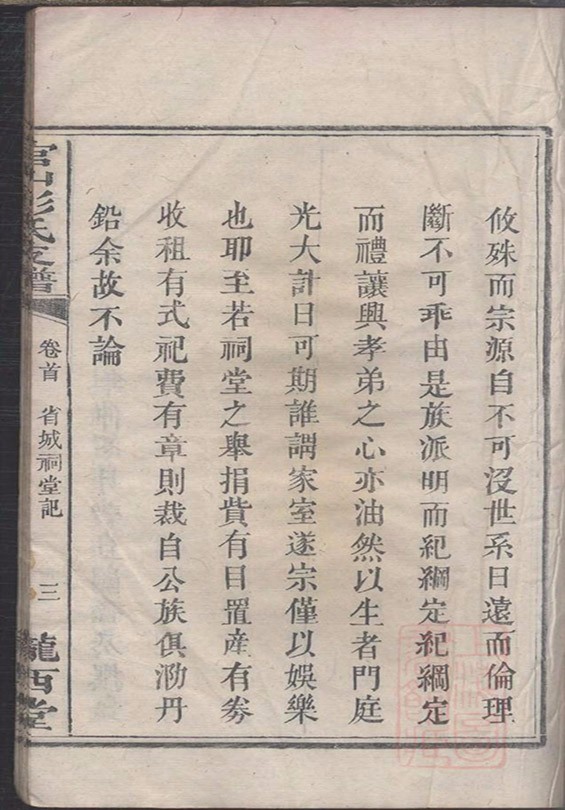 攸殊而宗源自不可沒世系日遠而倫理
斷不可乖由是族派明而紀綱定紀綱定
而禮讓興孝弟之心亦油然以生者門庭
光大計日可期誰謂家室遂宗僅以娛樂
也耶至若祠堂之舉捐貲有目置產有劵
收租有式祀費有章則裁自公族俱泐丹
鉛余故不論
官山彭氏支譜
卷首 省城祠堂記
三
隴西堂